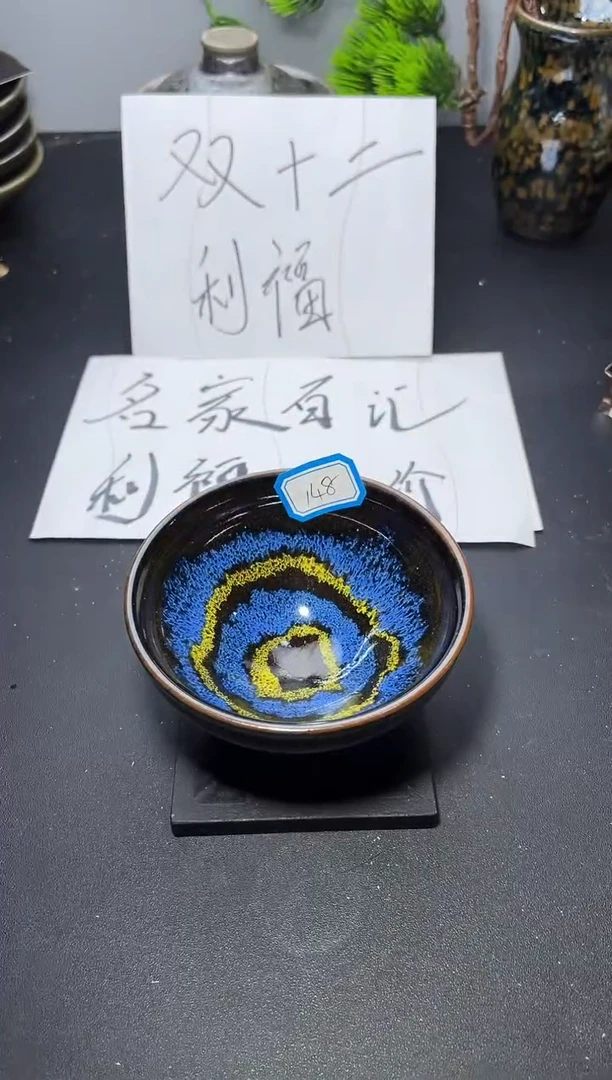 双十二
利福
名家百汇
利福 价
148